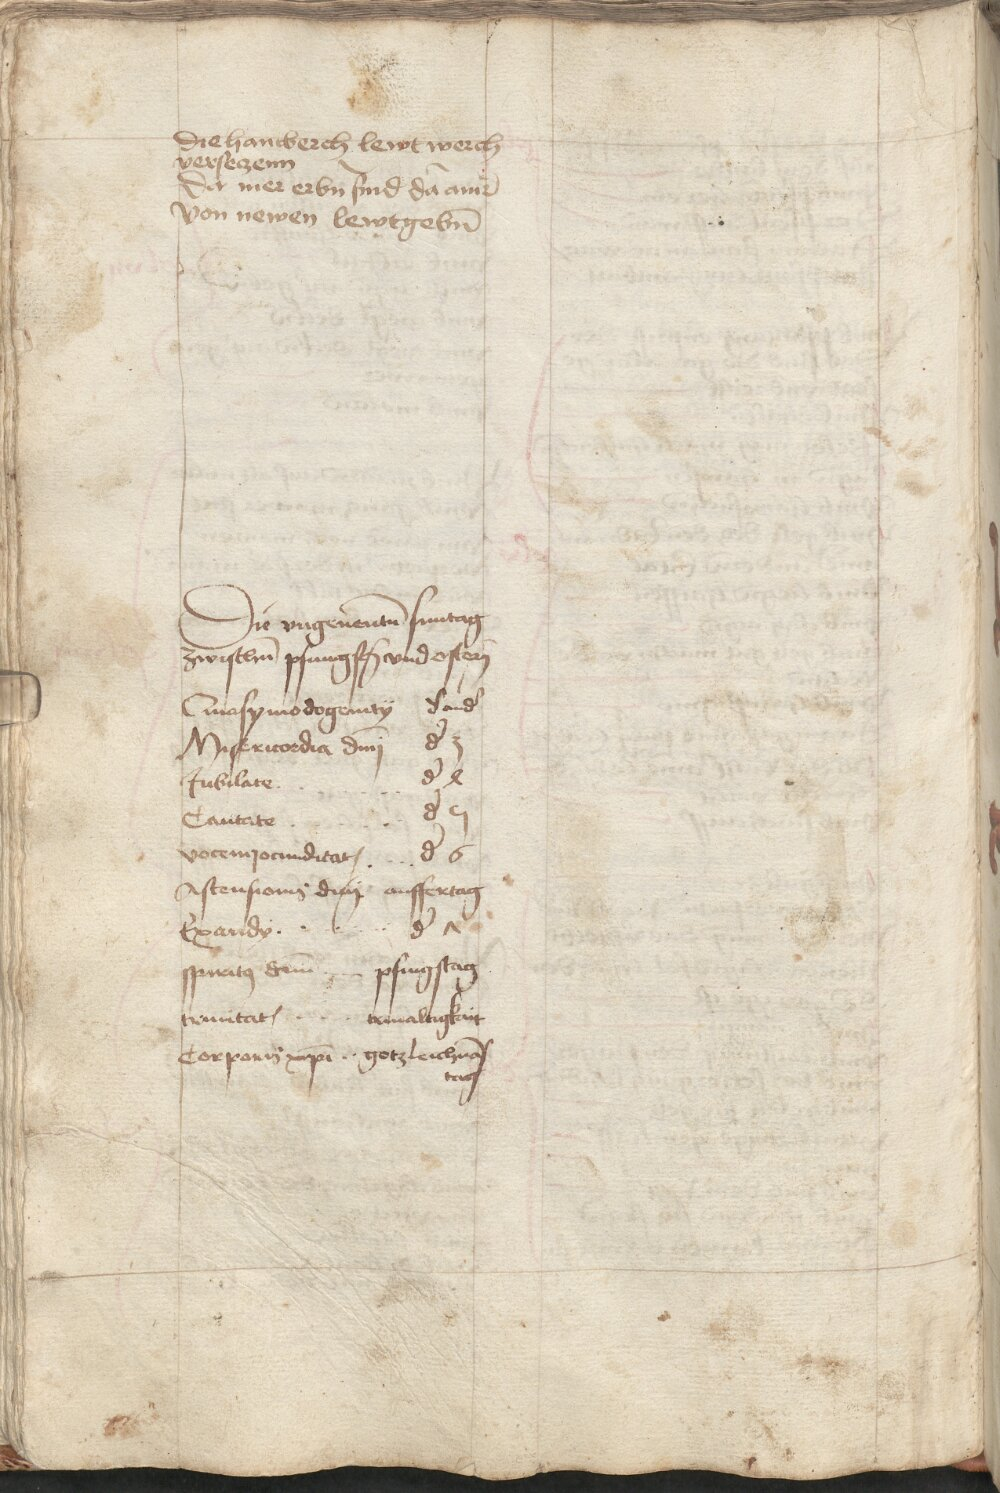 Die hantberch lewt werch
verseczenn
Da mer erbn sind da ainr
Von newen lewtgebn
Die ungenentn suntag
zwischn pfingstn und ostern
Quasymodogenity d' and'
Misericordia dnj d' 3
Jubilate . . . . . . d' 4
Cantate . . . . . d' 5
vocem jocunditat . . . d' 6
Ascensionis dnj auffertag
Exaudy . . . . . d' 7
spiritus dom . . . pfingstag
trinitat . . . . trivaltigkait
Corporis xpi . . gotzleichna
tag